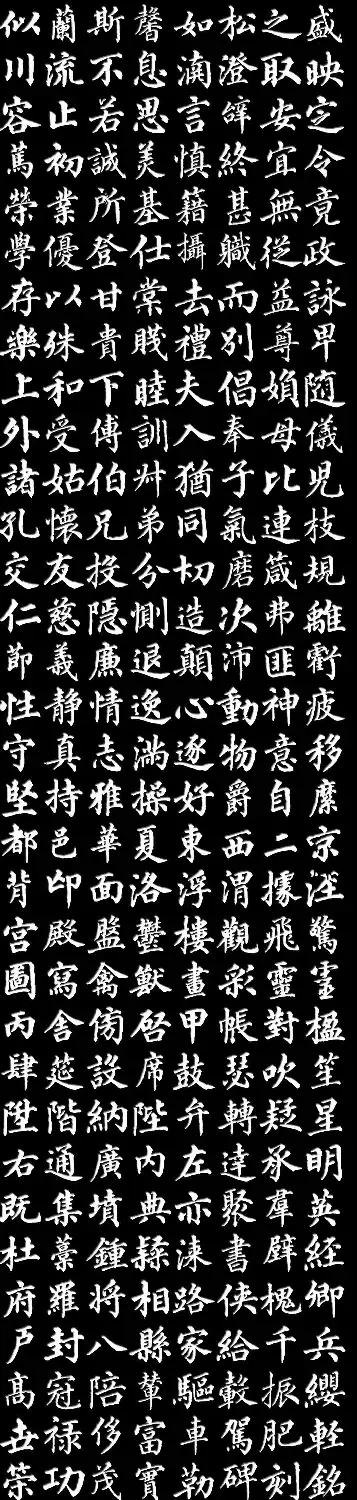 似蘭斯馨如松之盛
川流不息渊澄取映
容止若思言辭安定
篤初誠美慎終宜令
榮業所基籍甚無竟
學優登仕攝職從政
存以甘棠去而益詠
樂殊貴賤禮別尊卑
上和下睦夫倡婦隨
外受傅訓入奉母儀
諸姑伯叔猶子比兒
孔懷兄弟同氣連枝
交友投分切磨箴規
仁慈隱惻造次弗離
節義廉退顛沛匪虧
性静情逸心動神疲
守真志滿逐物意移
堅持雅操好爵自縻
都邑華夏東西二京
背邙面洛浮渭據涇
宮殿盤鬱樓觀飛驚
圖寫禽獸畫彩靈
丙舍傍啓甲帳對楹
肆筵設席鼓瑟吹笙
陞階納陛弁轉疑星
右通廣内左達承明
既集墳典亦聚羣英
杜稾鍾隸漆書壁經
府羅將相路俠槐卿
户封八縣家給千兵
高冠陪輦驅轂振纓
世祿侈富車駕肥輕
策功茂實勒碑刻銘